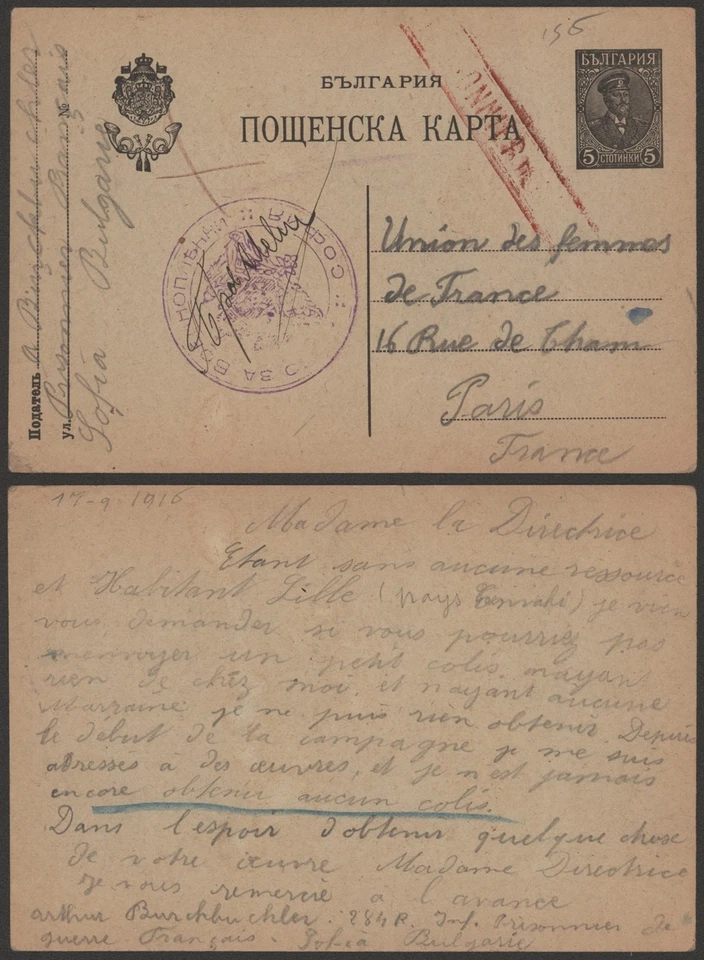 156
БЪЛГАРИЯ
ПОЩЕНСКА КАРТА
БЪЛГАРИЯ
5 СТОТИНКИ 5
Податель
ул. №
Prisonnier Français
Sofia Bulgarie
СОФИЯ
ЗА ВОЕННОПЛѢННИ
Union des femmes
de France
16 Rue de Cham
Paris
France
17-9-1916
Madame la Directrice
Etant sans aucune ressource
et Habitant Lille (pays Envahi) je vien
vous demander si vous pourriez pas
menvoyer un petit colis nayan
rien de chez moi, et nayant aucune
Marraine je ne puis rien obtenir. Depuis
le début de la campagne je me suis
adressés à des œuvres, et je n'est jamais
encore obtenu aucun colis.
Dans l'espoir d'obtenir quelque chose
de votre œuvre Madame Directrice
je vous remercie a l'avance
arthur Burchbuchler. 284 R. Inf. Prisonnier de
guerre Français. Sofia Bulgarie